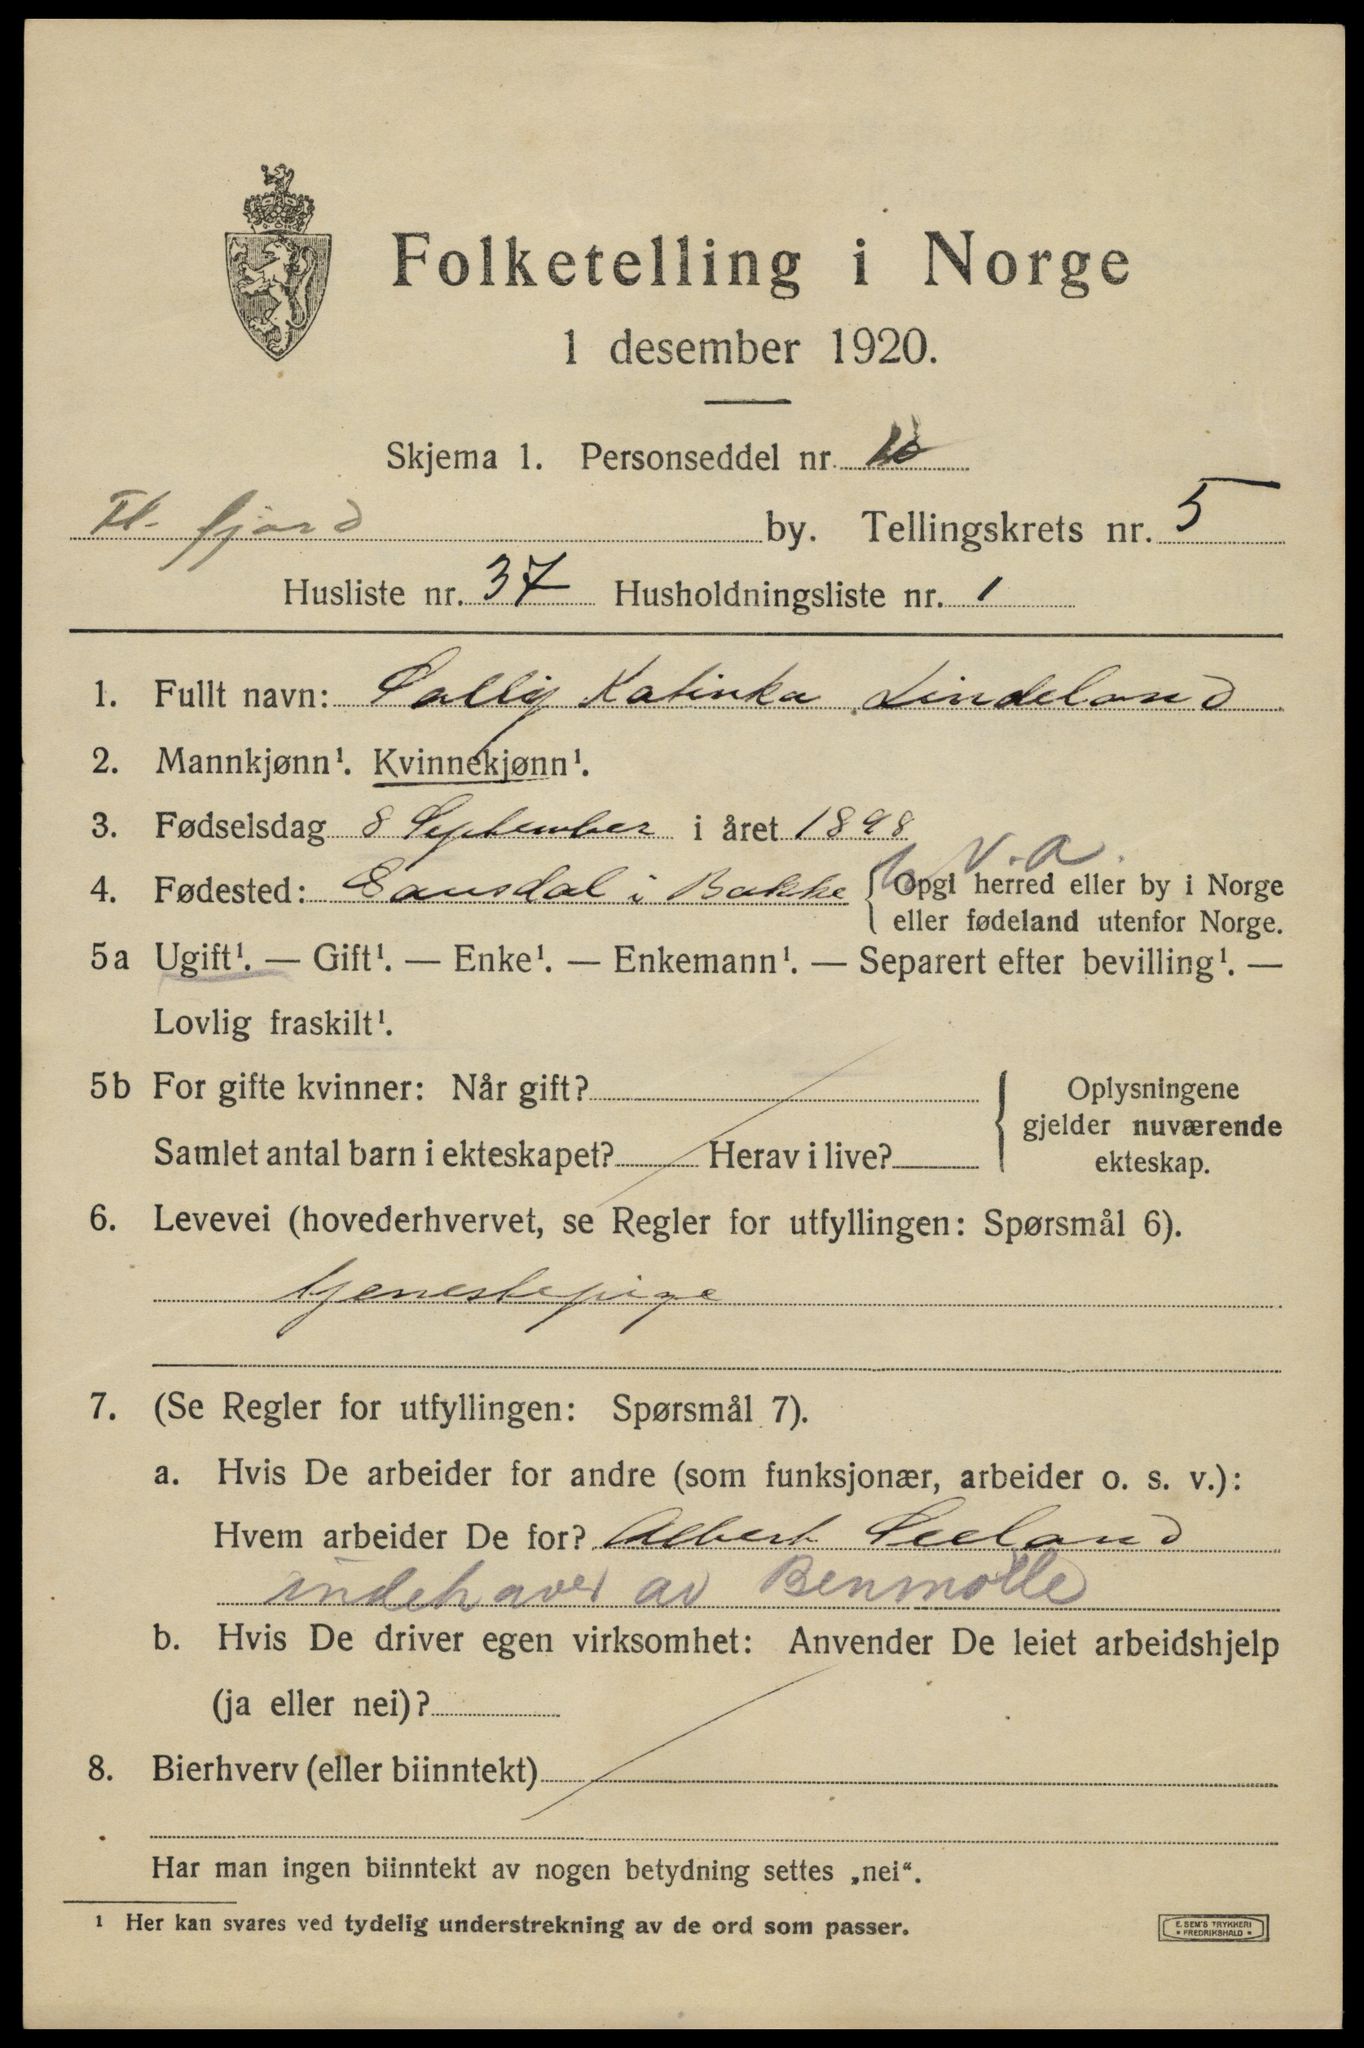 Folketelling i Norge
1 desember 1920.
Skjema 1. Personseddel nr.
Fl. fjord by. Tellingskrets nr. 5
Husliste nr. 37 Husholdningsliste nr. 1
1. Fullt navn: Sally Katinka Lindeland
2. Mannkjønn¹. Kvinnekjønn¹.
3. Fødselsdag 8 September i året 1898
V.a.
4. Fødested: i Bakke { Opgi herred eller by i Norge
eller fødeland utenfor Norge.
5a Ugift¹. — Gift¹. — Enke¹. — Enkemann¹. — Separert efter bevilling¹. —
Lovlig fraskilt¹.
5b For gifte kvinner: Når gift? { Oplysningene
gjelder nuværende
Samlet antal barn i ekteskapet? Herav i live? ekteskap.
6. Levevei (hovederhvervet, se Regler for utfyllingen: Spørsmål 6).
tjenestepige
7. (Se Regler for utfyllingen: Spørsmål 7).
a. Hvis De arbeider for andre (som funksjonær, arbeider o. s. v.):
Hvem arbeider De for? Albert Seeland
indehaver av Benmølle
b. Hvis De driver egen virksomhet: Anvender De leiet arbeidshjelp
(ja eller nei)?
8. Bierhverv (eller biinntekt)
Har man ingen biinntekt av nogen betydning settes „nei“.
¹ Her kan svares ved tydelig understrekning av de ord som passer.
E. SEM'S TRYKKERI
* FREDRIKSHALD *